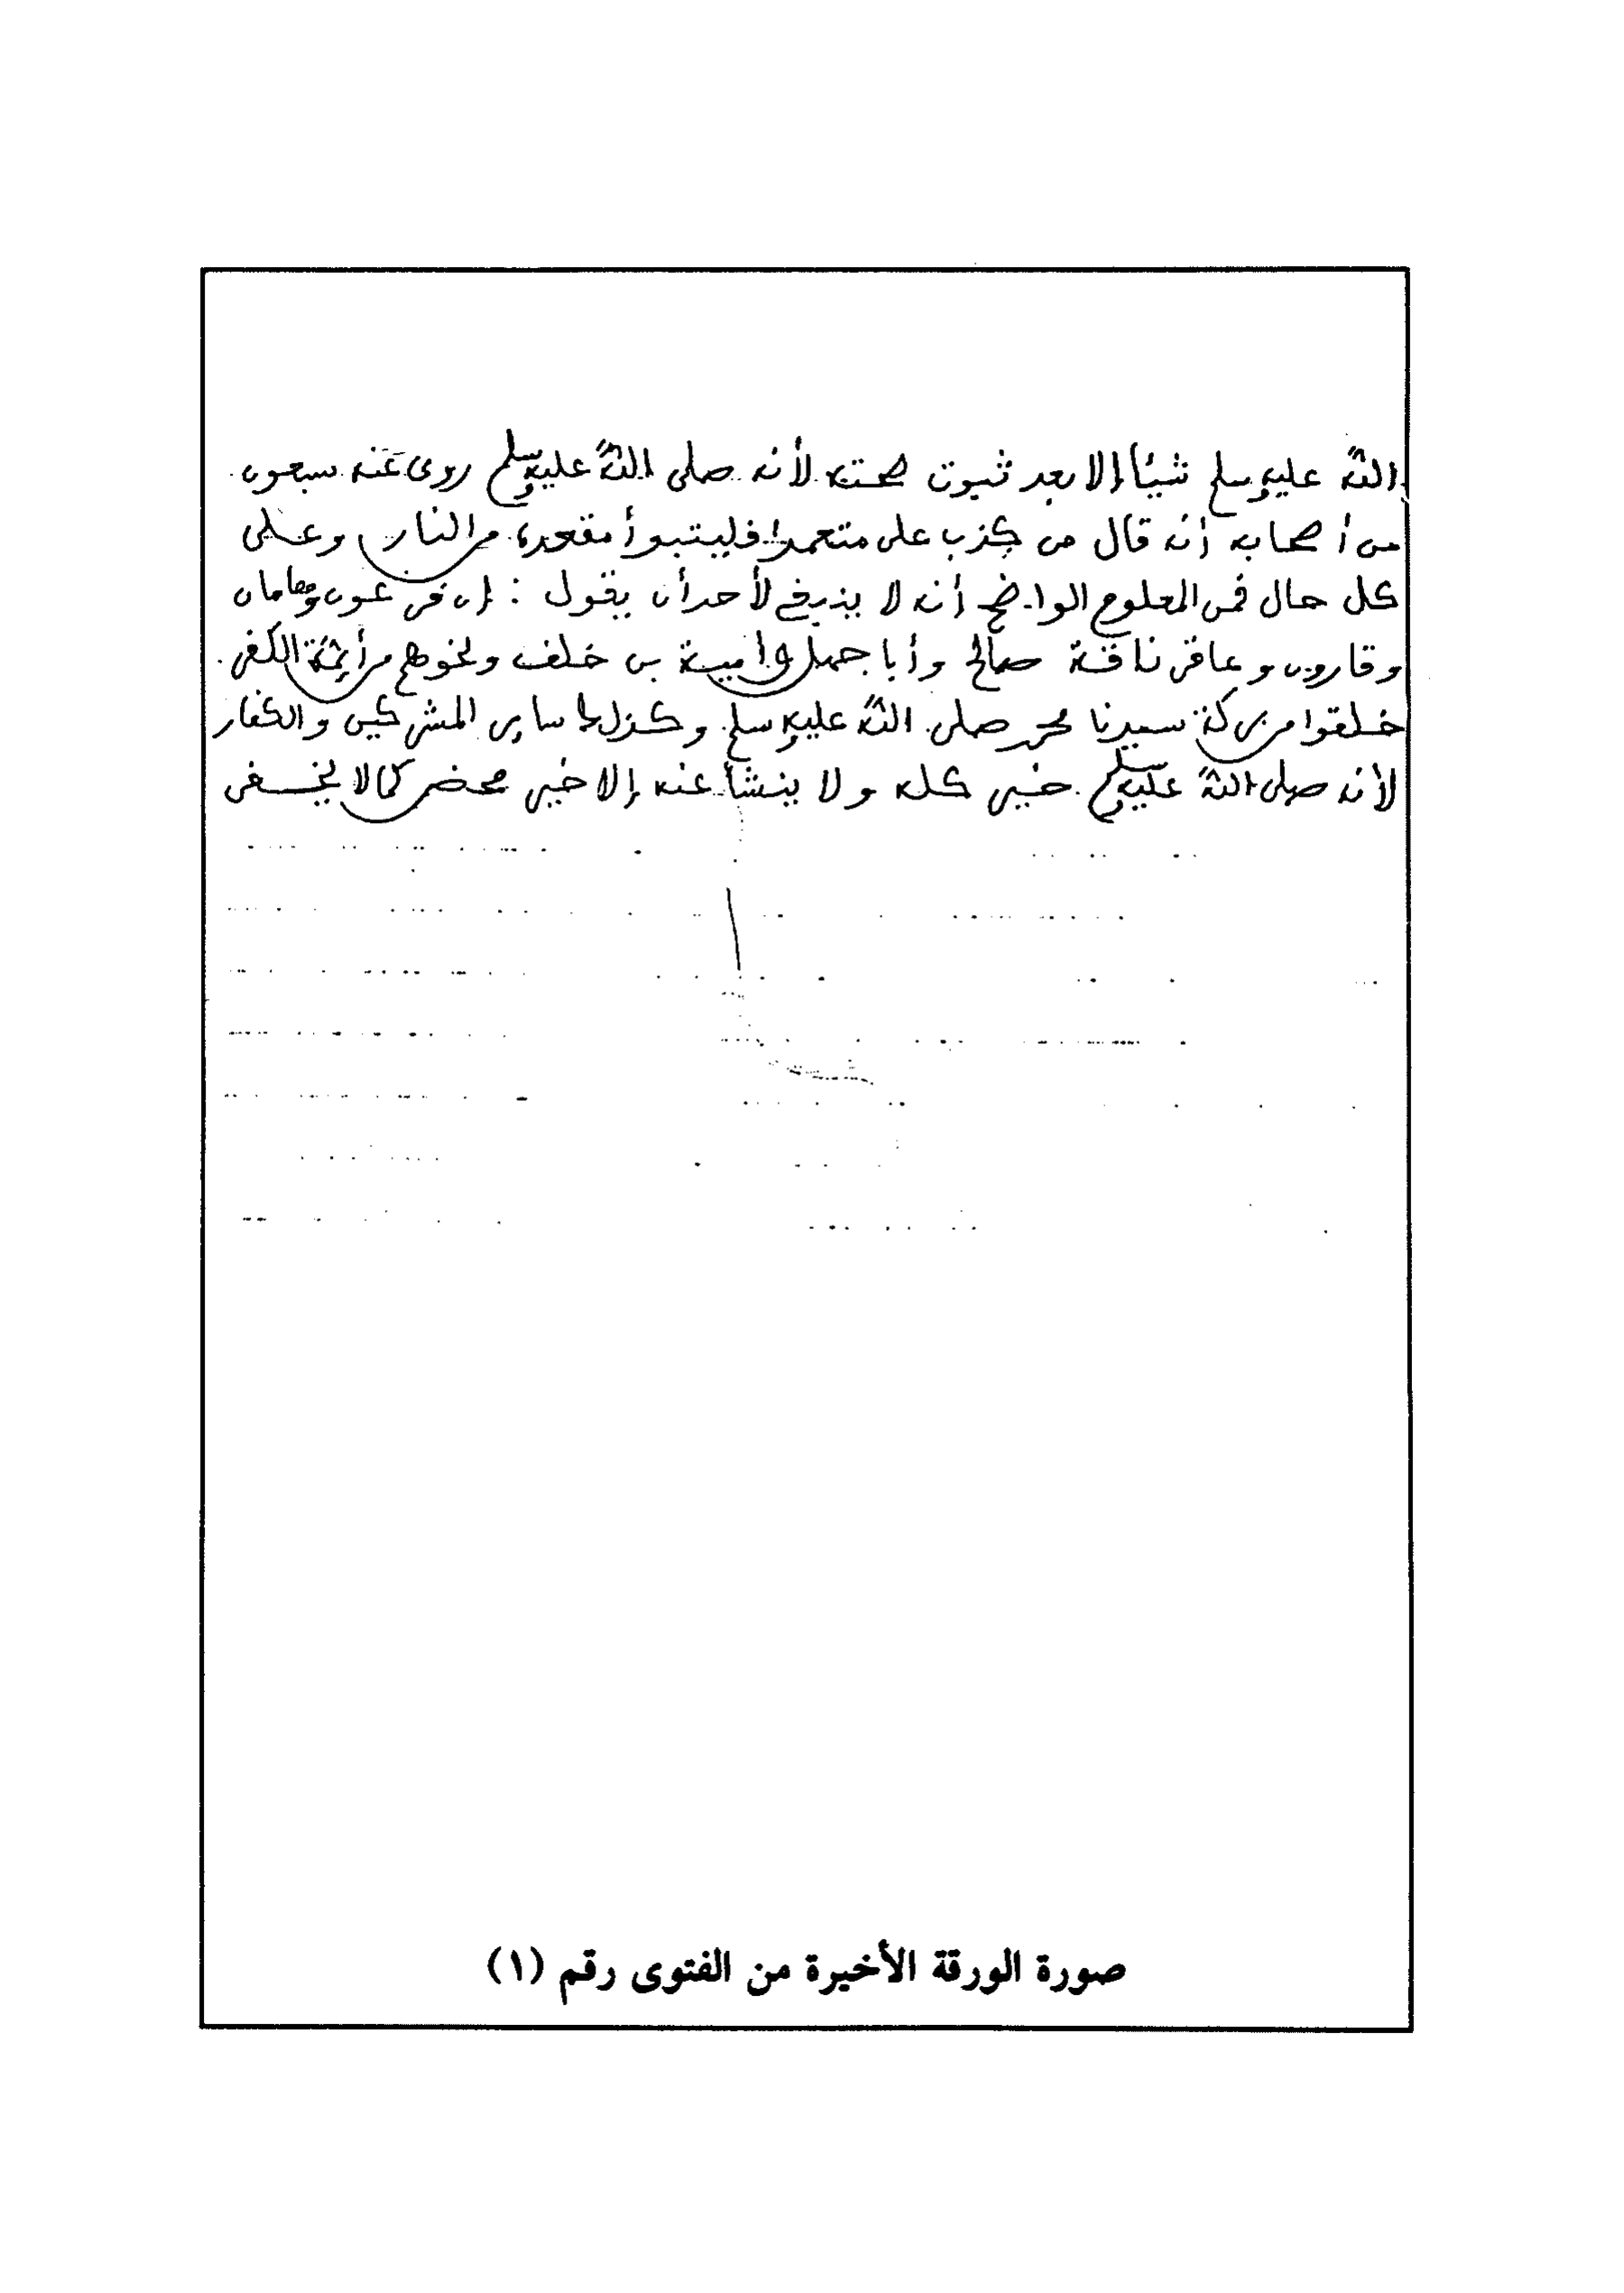 الله عليه وسلم شيئا إلا بعد ثبوت صحته لأنه صلى الله عليه وسلم روى عنه سبعون
من أصحابه أنه قال من كذب على متعمدا فليتبوأ مقعده من النار وعلى
كل حال فمن المعلوم الواضح أنه لا ينبغي لأحد أن يقول : إن فرعون وهامان
وقارون وعاقر ناقة صالح وأبا جهل وأمية بن خلف ونحوهم من أئمة الكفر
خلقوا من بركة سيدنا محمد صلى الله عليه وسلم وكذلك ساير المشركين والكفار
لأنه صلى الله عليه وسلم خير كله ولا ينشأ عنه إلا خير محض كما لا يخفى
صورة الورقة الأخيرة من الفتوى رقم (١)